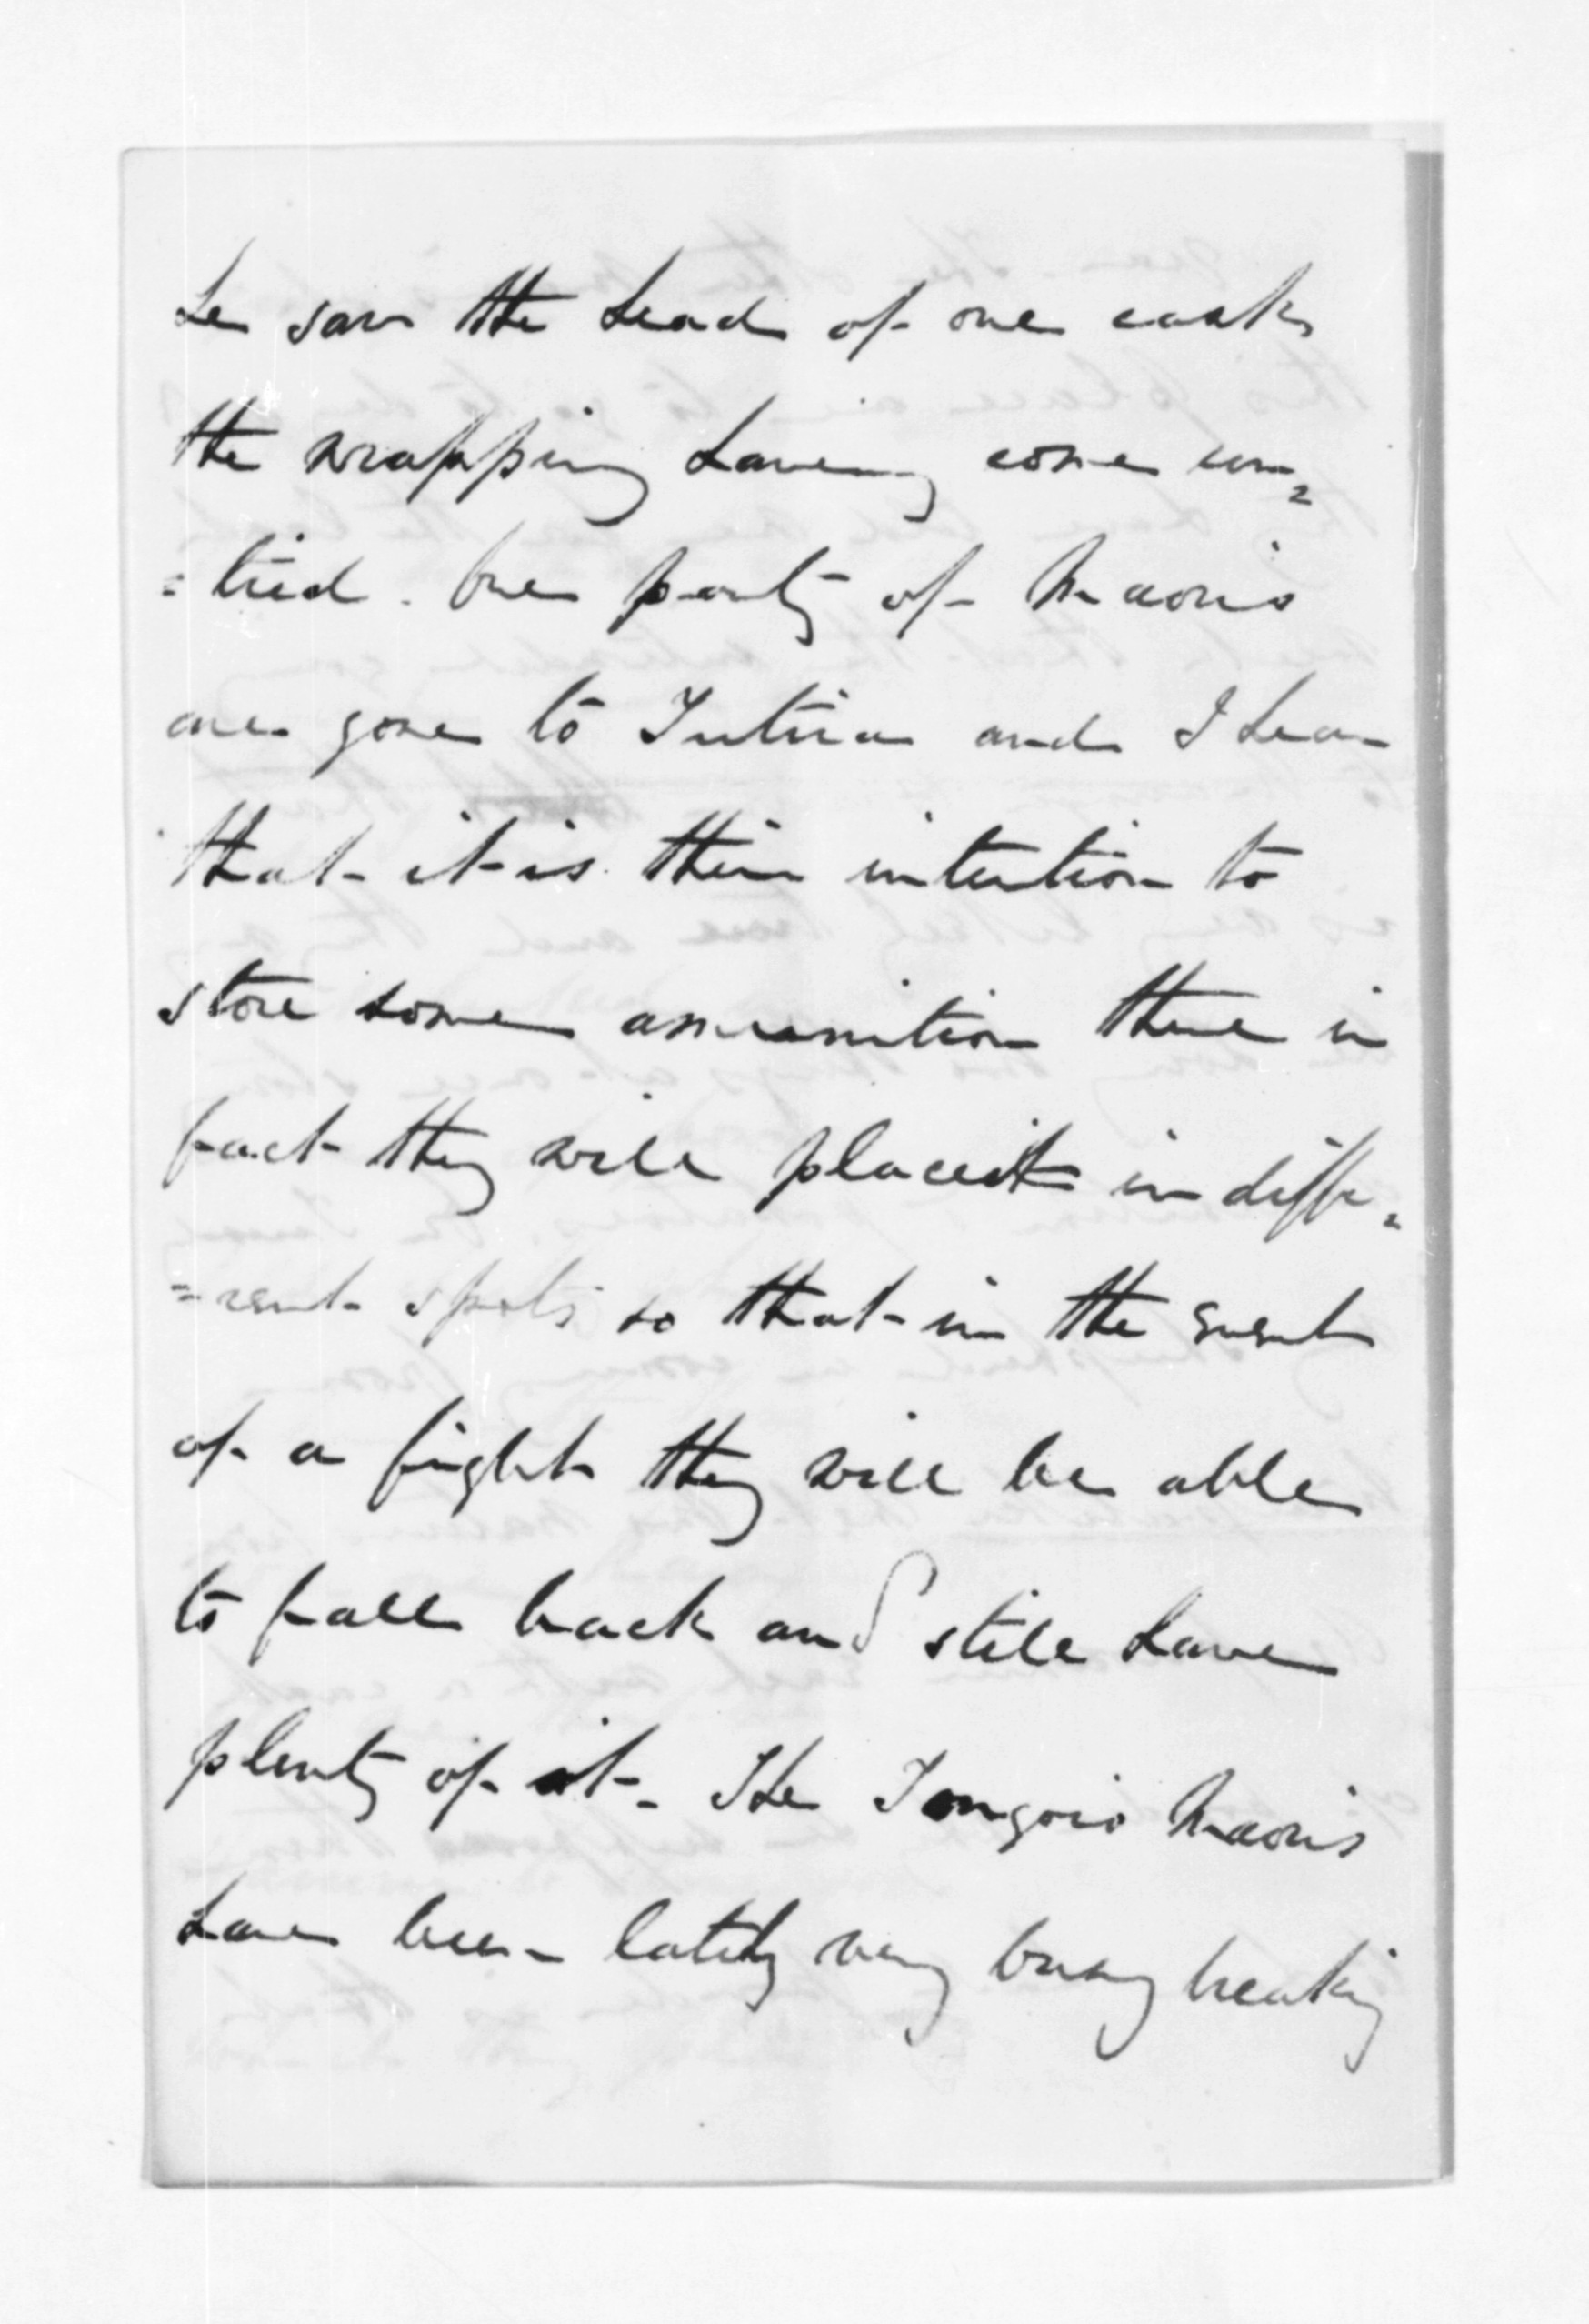 he saw the head of one cask
the wrapping having come un=
=tied. One party of Maoris
are gone to Tutira and I hear
that it is their intention to
store some ammunition there in
fact they will place it in diffe=
=rent spots so that in the event
of a fight they will be able
to fall back and still have
plenty of it. The Tangoio Maoris
have been lately very busy breaking